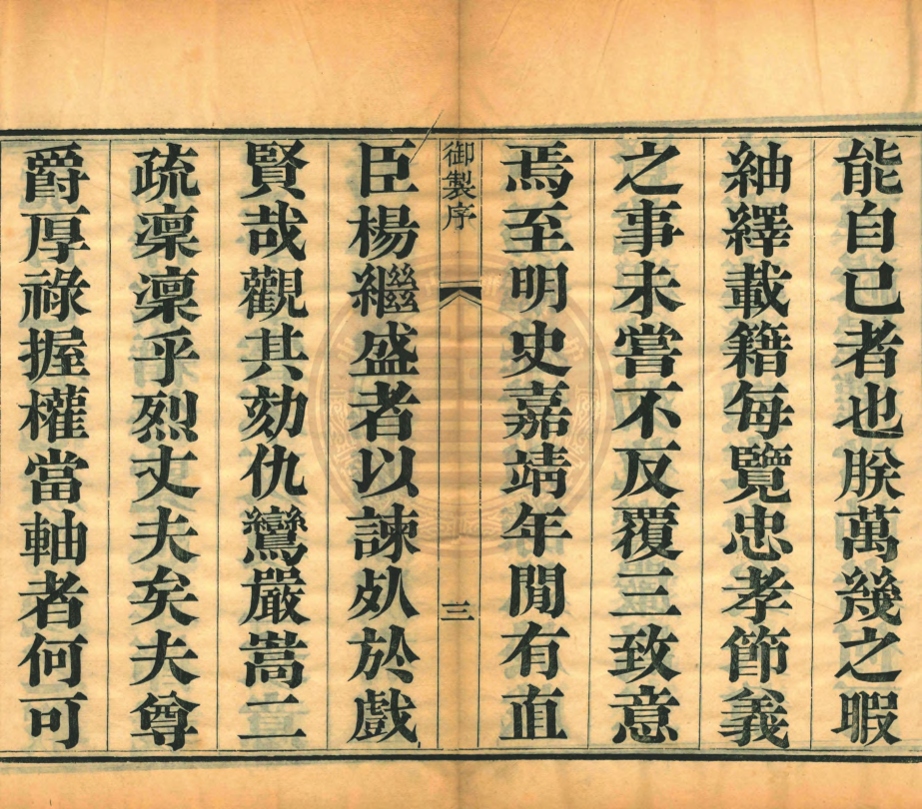 能自已者也朕萬幾之暇
紬繹載籍每覽忠孝節義
之事未嘗不反覆三致意
焉至明史嘉靖年閒有直
御製序
三
臣楊繼盛者以諫死於戲
賢哉觀其劾仇鸞嚴嵩二
疏凜凜乎烈丈夫矣夫尊
爵厚祿握權當軸者何可